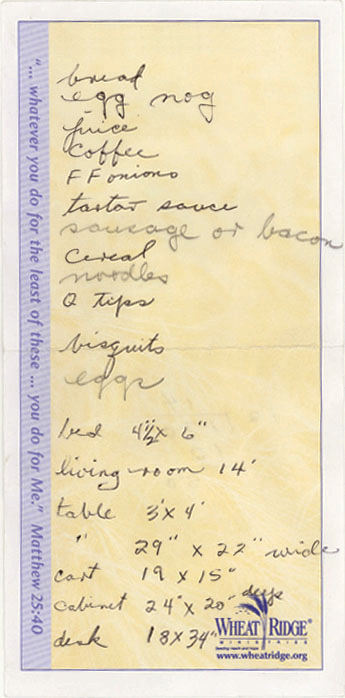 "... whatever you do for the least of these ... you do for Me." Matthew 25:40
bread
egg nog
juice
coffee
FF onions
tartar sauce
sausage or bacon
cereal
noodles
Q tips
bisquits
eggs
bed 4½ x 6"
living room 14'
table 3' x 4'
" 29" x 22" wide
cart 19 x 15"
cabinet 24" x 20" deep
desk 18 x 34"
WHEAT RIDGE®
MINISTRIES
Seeding health and hope
www.wheatridge.org